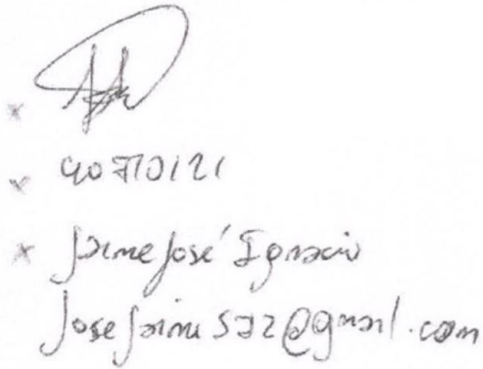 40710121
Jaime José Ignacio
Josejaime572@gmail.com